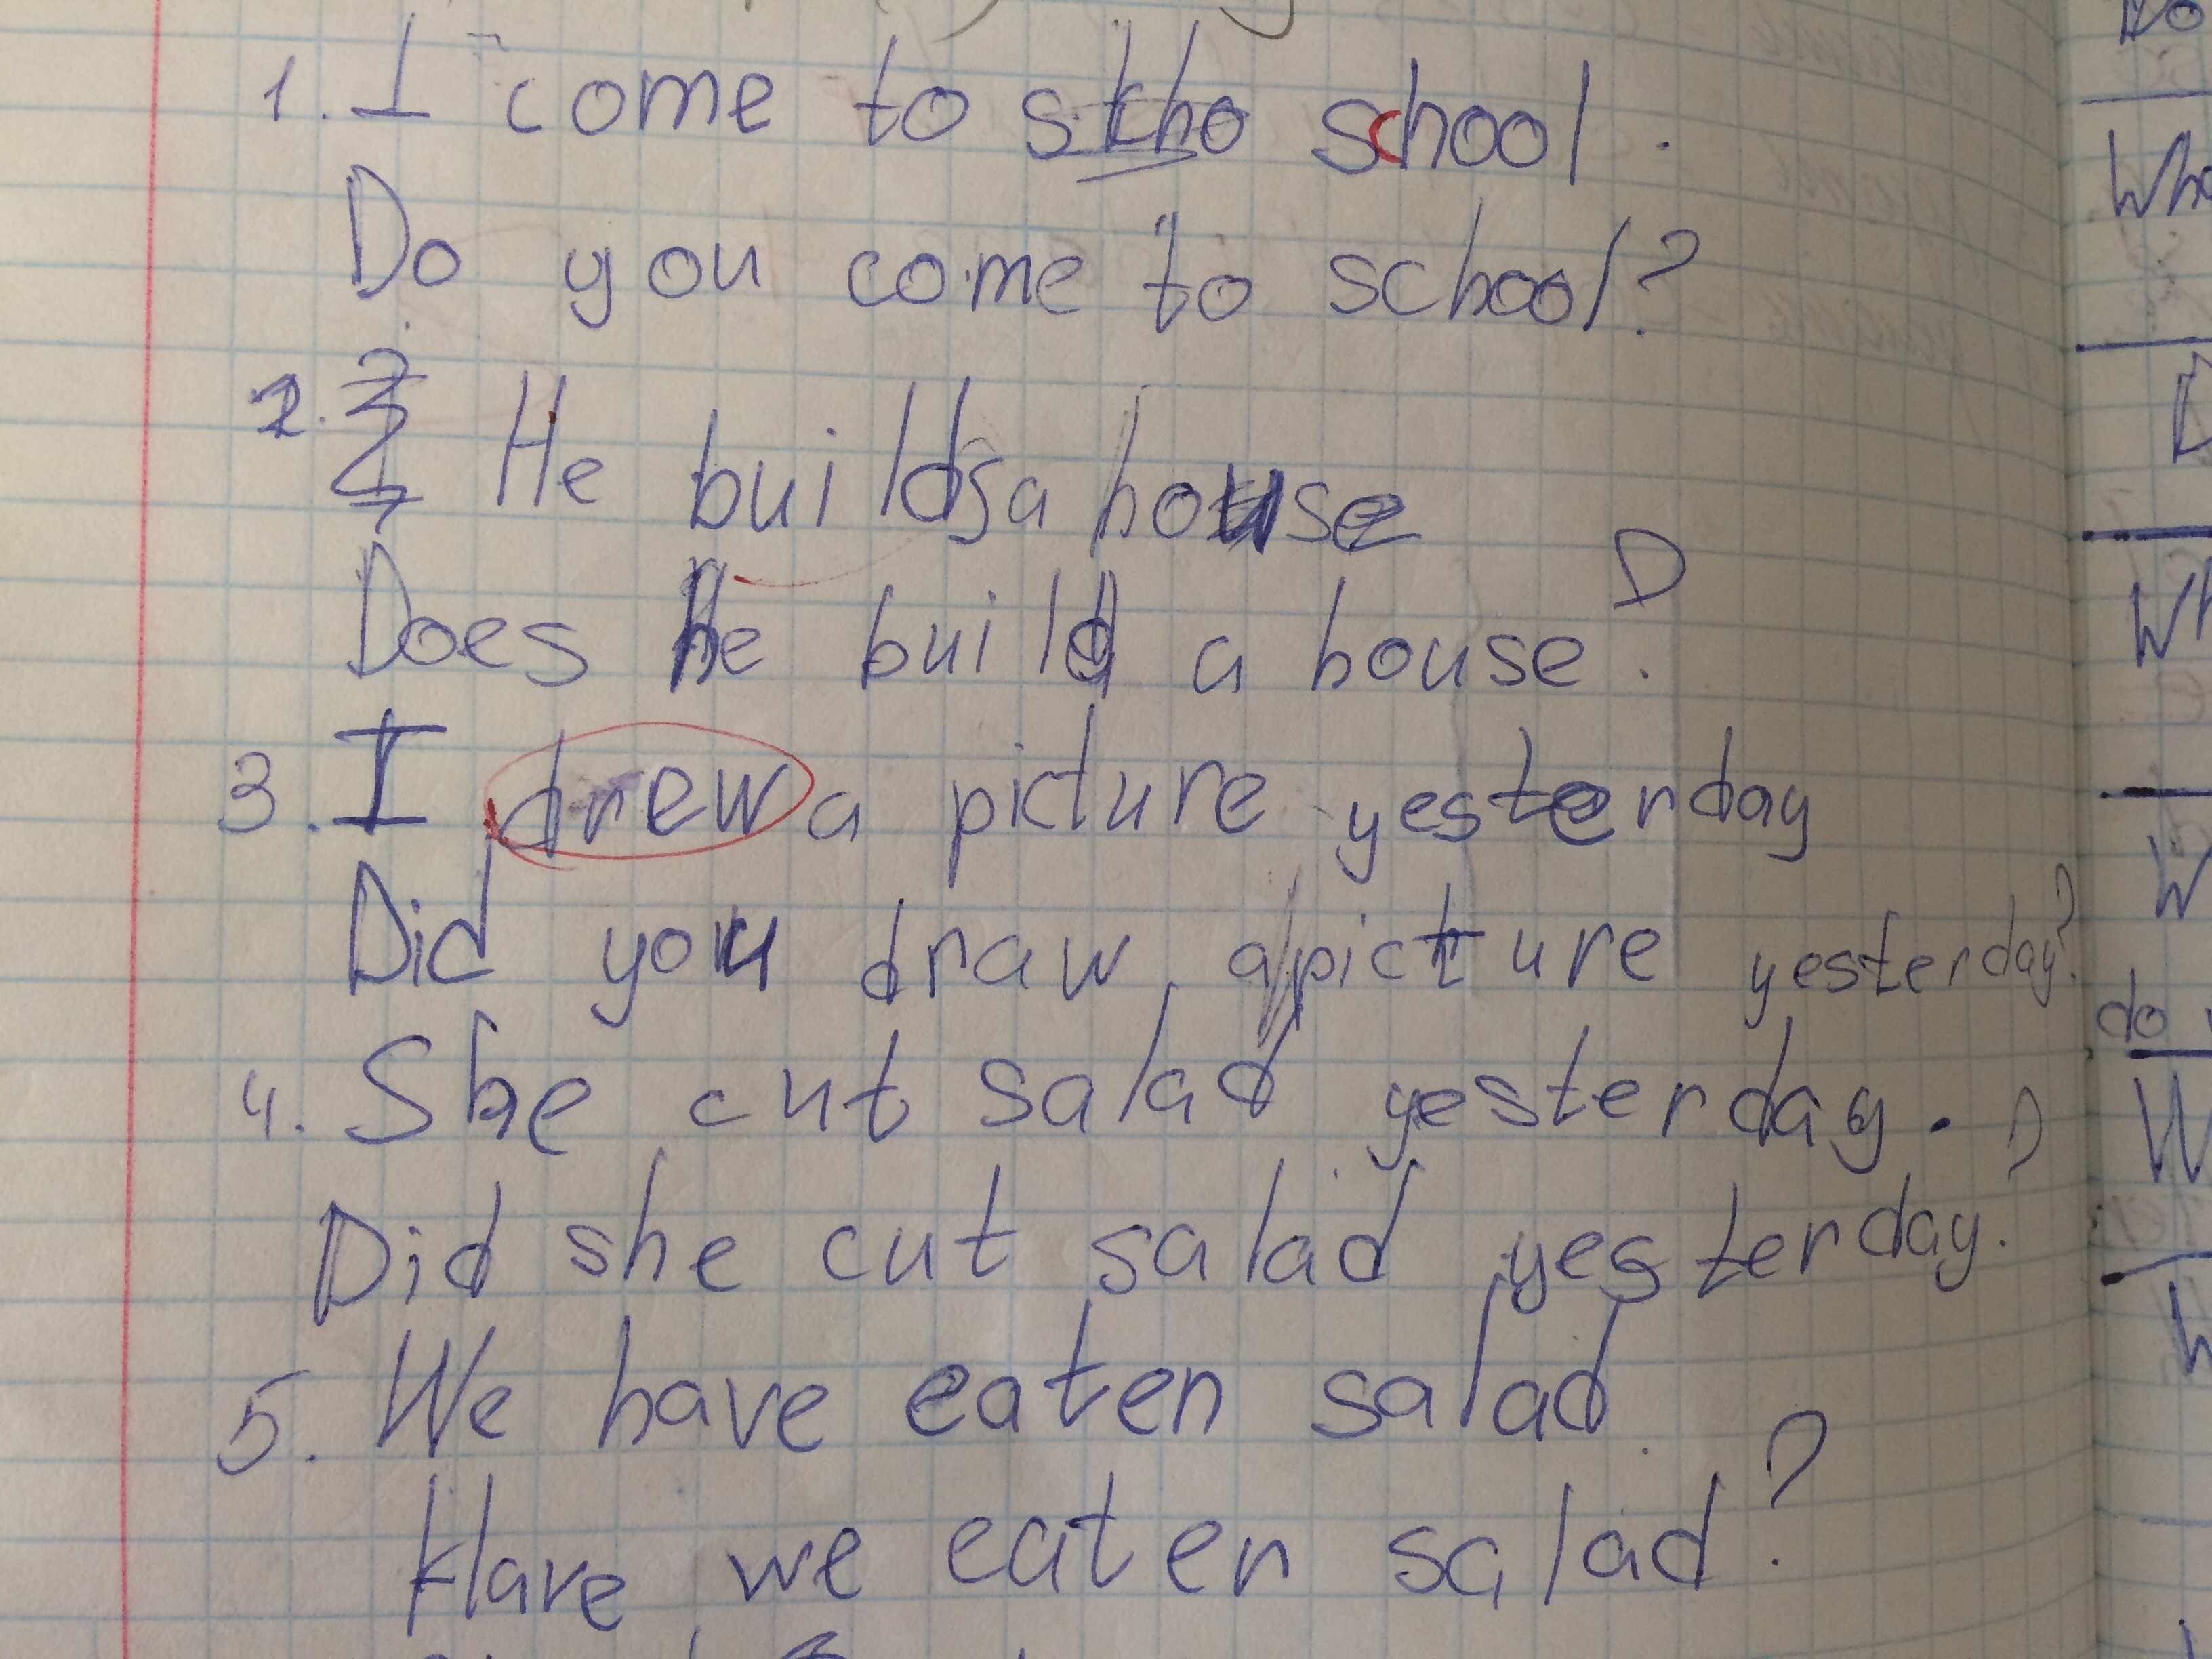 1. I come to scho school.
Do you come to school?
2. He builds a house
Does he build a house?
3. I drew a picture yesterday
Did you draw a picture yesterday?
4. She cut salad yesterday.
Did she cut salad yesterday?
5. We have eaten salad.
Have we eaten salad?
Do
Who
Wh
W
do
W